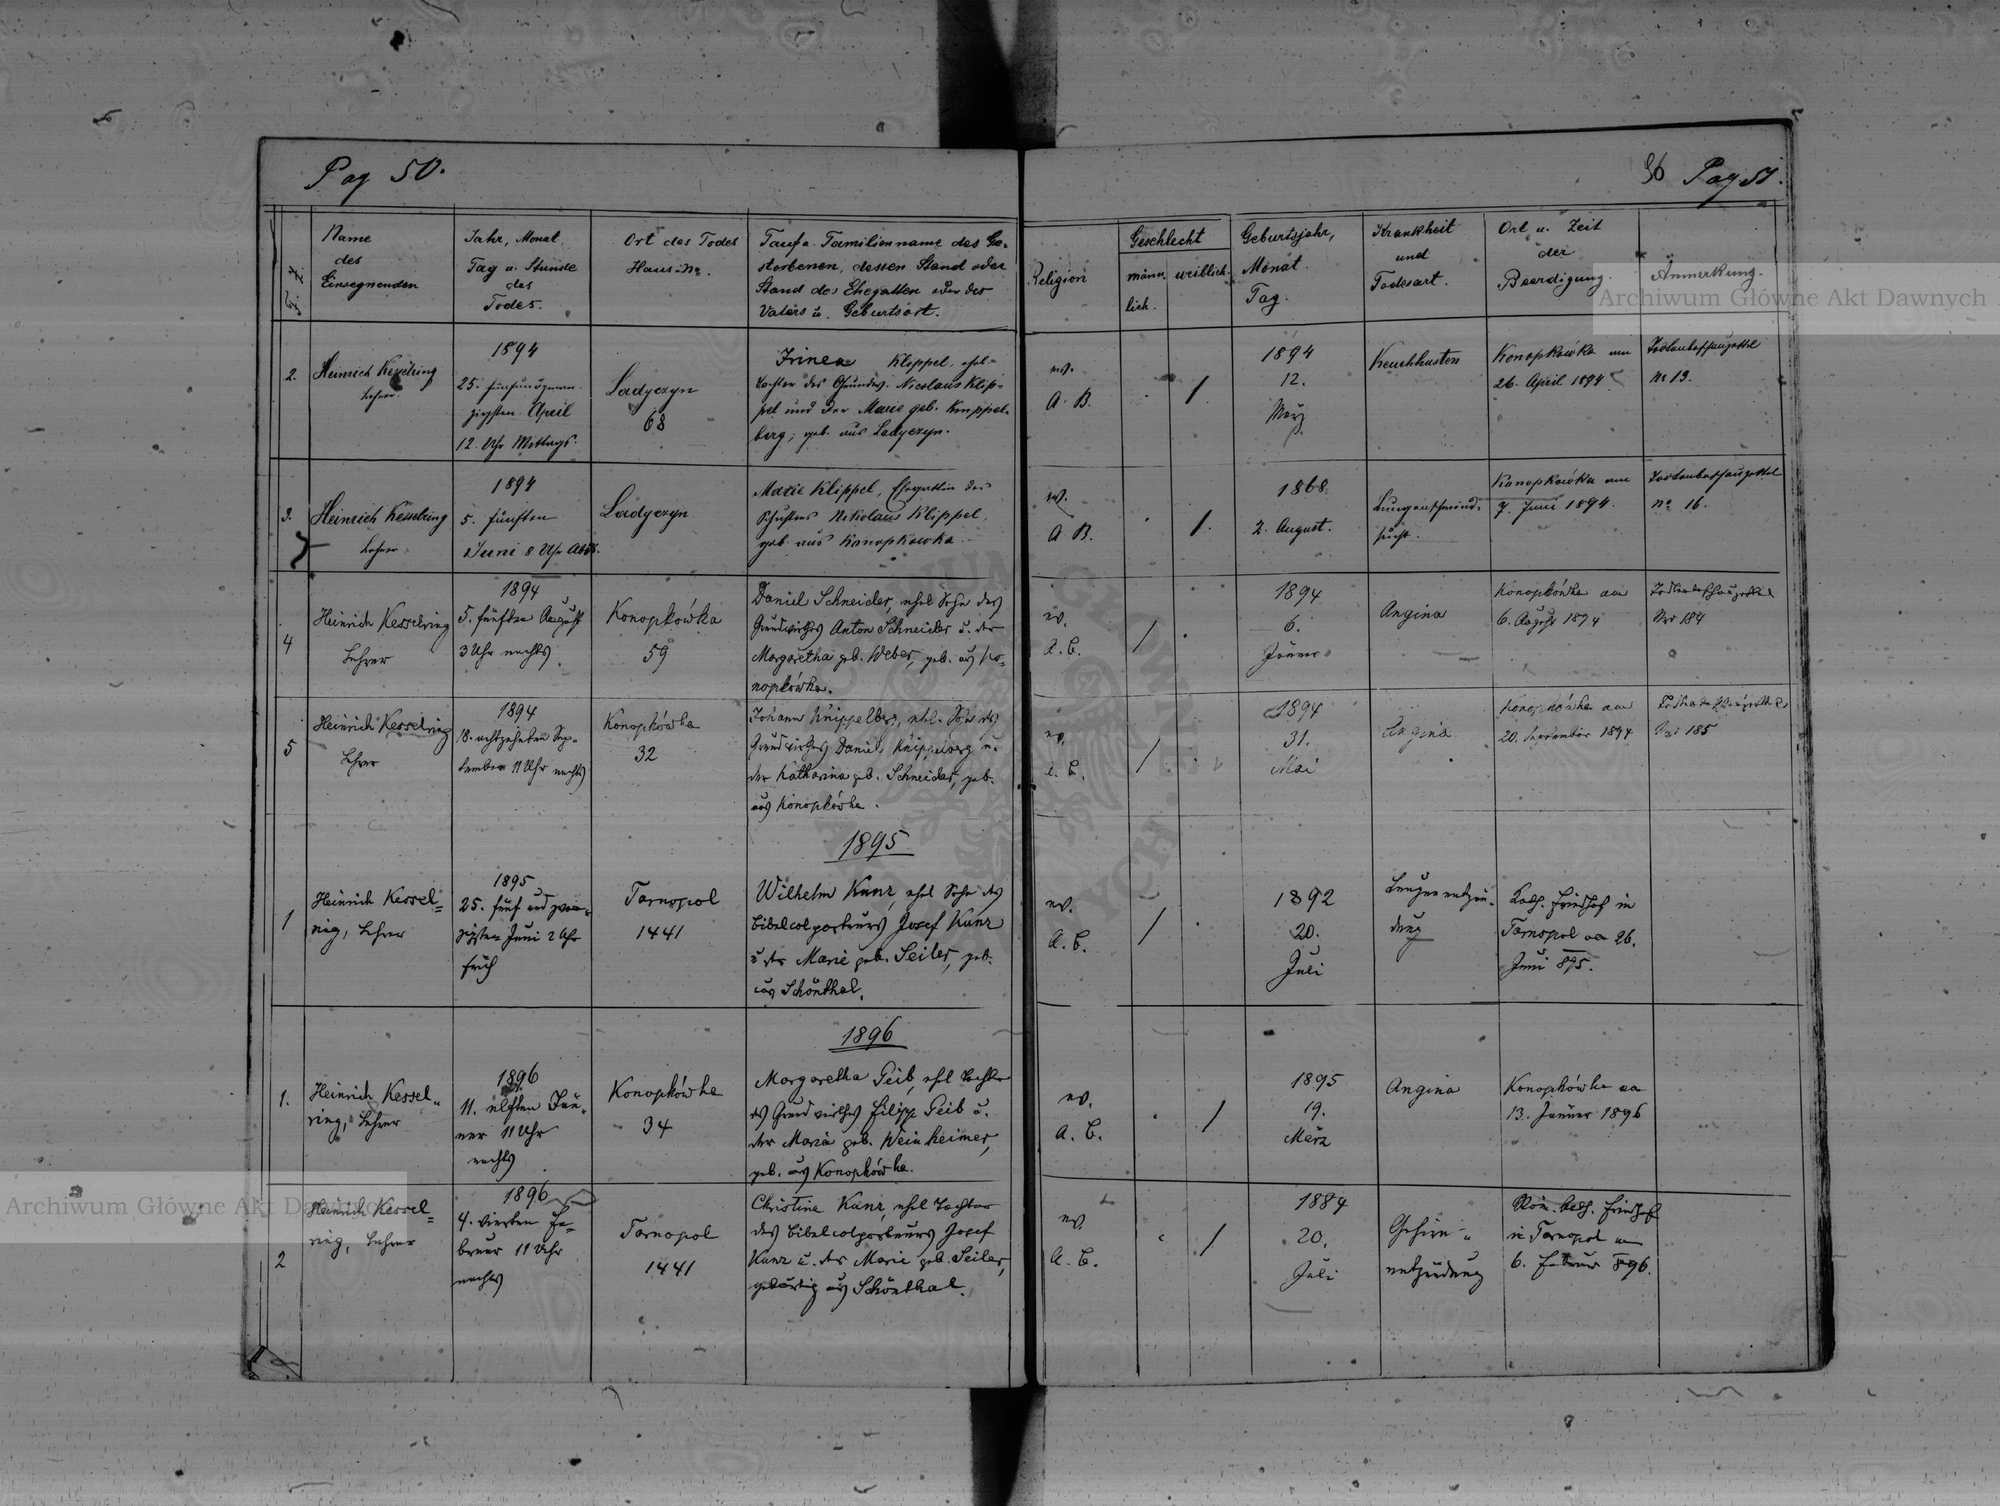 Pag 50.
F. Z.
Name
des
Einsegnenden
Jahr, Monat,
Tag u. Stunde
des
Todes.
Ort des Todes
Haus-No.
Tauf u. Familienname des Ge-
storbenen, dessen Stand oder
Stand des Ehegatten oder des
Vaters u. Geburtsort.
2.
Heinrich Kesselring
Lehrer
1894
25. fünfundzwan-
zigsten April
12. Uhr Mittags.
Ladyczyn
68
Irinea Klippel, ehel-
Tochter des Nicolaus Klip-
pel und der Marie geb. Knippel-
berg, geb. aus Ladyczyn.
3.
Heinrich Kesselring
Lehrer
1894
5. fünften
Juni 8 Uhr Abds.
Ladyczyn
Marie Klippel, Ehegattin des
Schusters Nikolaus Klippel,
geb. aus Konopkowka
4
Heinrich Kesselring
Lehrer
1894
5. fünften August
3 Uhr nachts
Konopkówka
59
Daniel Schneider, ehel Sohn des
Grundwirthes Anton Schneider u. der
Margaretha geb. Weber, geb. aus Ko-
nopkówka.
5
Heinrich Kesselring
Lehrer
1894
18. achtzehnten Sep-
tember 11 Uhr nachts
Konopkówka
32
Johann Knippelberg, ehl. Sohn des
Grundwirthes Daniel Knippelberg u.
der Katharina geb. Schneider, geb.
aus Konopkówka.
1895
1
Heinrich Kessel=
ring, Lehrer
1895
25. fünf und zwan-
zigsten Juni 2 Uhr
früh
Tarnopol
1441
Wilhelm Kunz, ehel Sohn des
Bibelcolporteurs Josef Kunz
u. der Marie geb. Seiler, geb.
aus Schönthal.
1896
1.
Heinrich Kessel-
ring, Lehrer
1896
11. elften Jän-
ner 11 Uhr
nachts
Konopkówka
34
Margaretha Geib, ehel Tochter
des Grundwirthes Filipp Geib u.
der Maria geb. Weinheimer,
geb. aus Konopkówka.
2
Heinrich Kessel=
ring, Lehrer
1896
4. vierten Fe-
bruar 11 Uhr
nachts
Tarnopol
1441
Christine Kunz, ehel Tochter
des Bibelcolporteurs Josef
Kunz u. der Marie geb. Seiler,
gebürtig aus Schönthal.
96 Pag 51.
Religion
Geschlecht
männ-
lich.
weiblich.
Geburtsjahr,
Monat.
Tag.
Krankheit
und
Todesart.
Ort u. Zeit
der
Beerdigung.
Anmerkung.
ev.
A. B.
1894
12.
März
Keuchhusten
Konopkówka am
26. April 1894
Todtenbeschauzettel
No 13.
ev.
A B.
1868
2. August.
Lungenschwind-
sucht.
Konopkówka am
7. Juni 1894.
Todtenbeschauzettel
No 16.
ev.
A. B.
1894
6.
Jänner
Angina
Konopkówka am
6. August 1894
Todtenbeschauzettel
Nro 184
ev.
A. B.
1894
31.
Mai
Angina
Konopkówka am
20. September 1894
Todtenbeschauzettel
Nro 185
ev.
A. B.
1892
20.
Juli
Lungenentzün-
dung
Kath. Friedhof in
Tarnopol am 26.
Juni 895.
ev.
A. B.
1895
19.
März
Angina
Konopkówka am
13. Jänner 1896
ev.
A. B.
1884
20.
Juli
Gehirn-
entzündung
Röm. kath. Friedhof
in Tarnopol am
6. Februar 896.
Archiwum Główne Akt Dawnych
Archiwum Główne Akt Dawnych